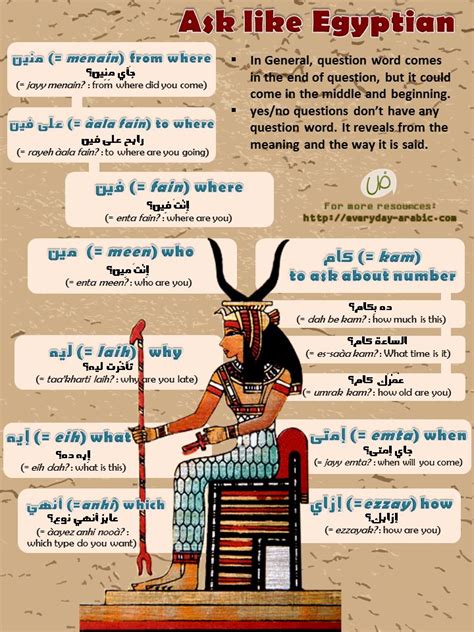 Ask like Egyptian
منين (= menain) from where
جاي منين؟
(= jayy menain? : from where did you come)
على فين (= àala fain) to where
رايح على فين؟
(= rayeh àala fain? : to where are you going)
فين (= fain) where
إنت فين؟
(= enta fain? : where are you)
▪ In General, question word comes
in the end of question, but it could
come in the middle and beginning.
▪ yes/no questions don't have any
question word. It reveals from the
meaning and the way it is said.
For more resources:
http://everyday-arabic.com
مين (= meen) who
إنت مين؟
(= enta meen? : who are you)
كام (= kam)
to ask about number
ده بكام؟
(= dah be kam? : how much is this)
الساعة كام؟
(= es-saàa kam? : What time is it)
عمرك كام؟
(= umrak kam? : how old are you)
ليه (= laih) why
تأخرت ليه؟
(= taa'kharti laih? : why are you late)
إيه (= eih) what
إيه ده؟
(= eih dah? : what is this)
إمتى (= emta) when
جاي إمتى؟
(= jayy emta? : when will you come)
أنهي (=anhi) which
عايز أنهي نوع؟
(= àayez anhi nooà? :
which type do you want)
إزاي (=ezzay) how
إزايك؟
(= ezzayak? : how are you)